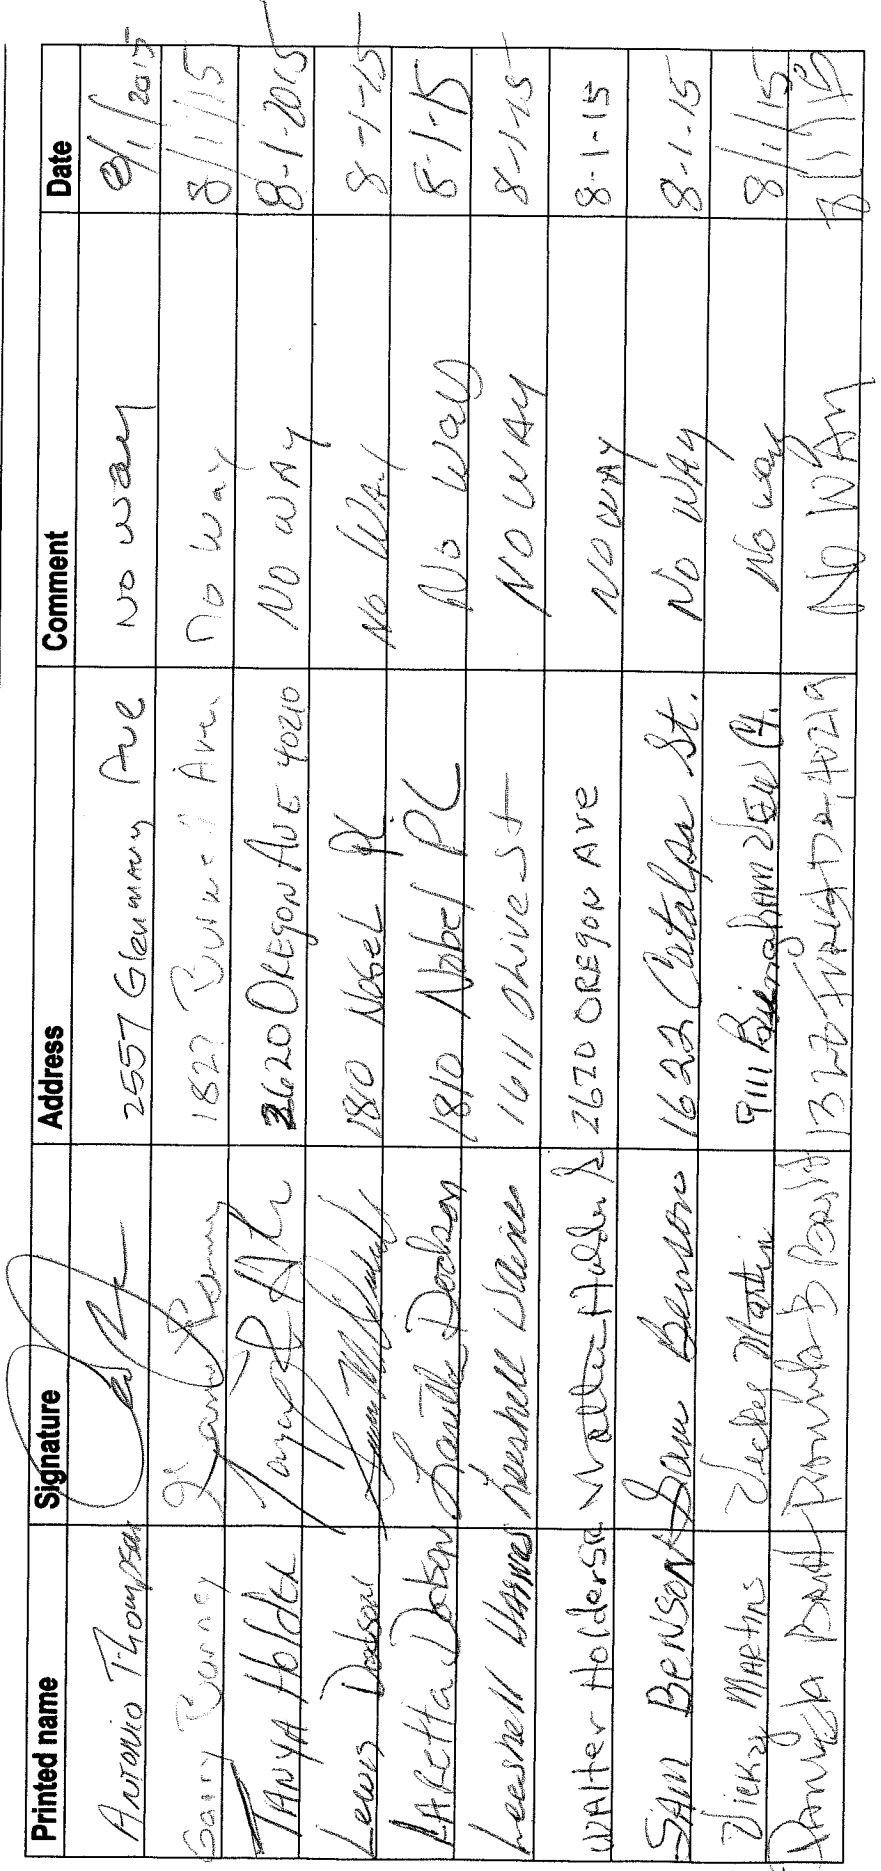 Printed name Signature Address Comment Date
Antonio Thompson 2557 Glenmary Ave No way 8/1/2015
Garry Burney 1827 Ave. No Way 8/1/15
TANYA Holden 2620 OREGON AVE 40210 NO WAY 8-1-2015
Lewis Dodson 1810 NobeL PL No WAy 8-1-15
LARetta Dodson Lauretta Dodson 1810 Nobel PL No Way 8-1-15
Leeshell Haines Leeshell Haines 1611 Olive St NO WAY 8-1-15
WAlter HolderSR Walter Holder Sr 2620 OREGON AVE NO WAY 8-1-15
SAM BENSON Sam Benson 1622 Catalpa St. No WAY 8-1-15
Vicky MARtin Vicky Martin 9111 BinghAMVIEW Ct. No way 8/1/15
Britt B Britt 1320 40219 No WAy 8/1/15